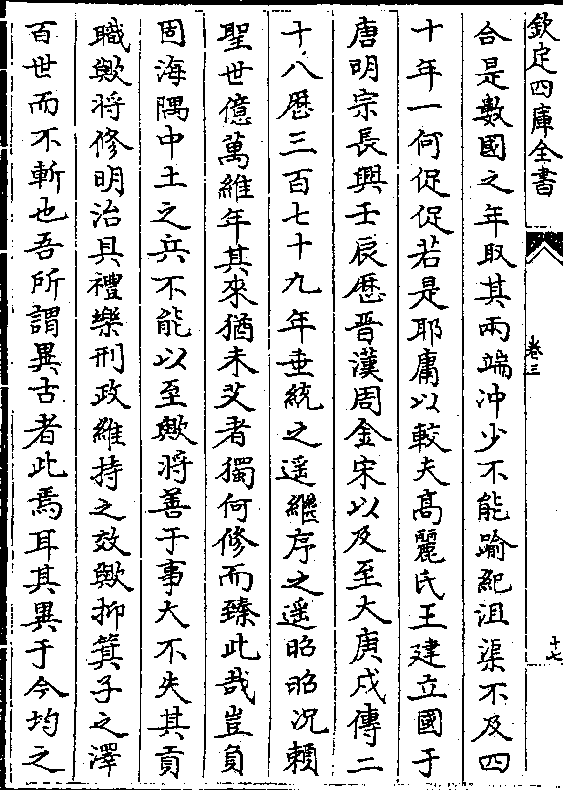 欽定四庫全書
卷三
十七
合是數國之年取其兩端沖少不能踰紀沮渠不及四
十年一何促促若是耶庸以較夫髙麗氏王建立國于
唐明宗長興壬辰歴晉漢周金宋以及至大庚戌傳二
十八歴三百七十九年垂統之遥繼序之遥昭昭况頼
聖世億萬維年其來猶未艾者獨何修而臻此哉豈負
固海隅中土之兵不能以至歟将善于事大不失其貢
職歟将修明治具禮樂刑政維持之效歟抑箕子之澤
百世而不斬也吾所謂異古者此焉耳其異于今均之